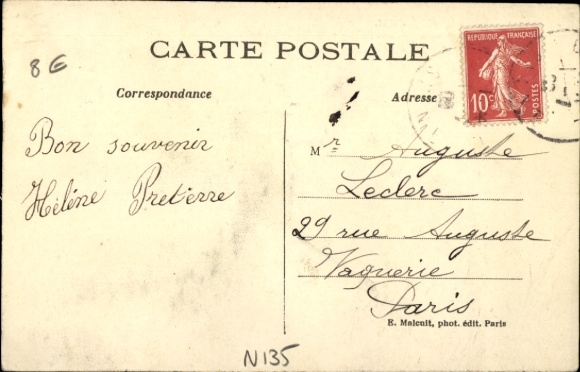 8 €
CARTE POSTALE
RÉPUBLIQUE FRANÇAISE
10 c
POSTES
Correspondance
Adresse
Bon souvenir
Hélène Preterre
Mr Auguste
Leclerc
29 rue Auguste
Vaquerie
Paris
E. Malcuit, phot. édit. Paris
N135